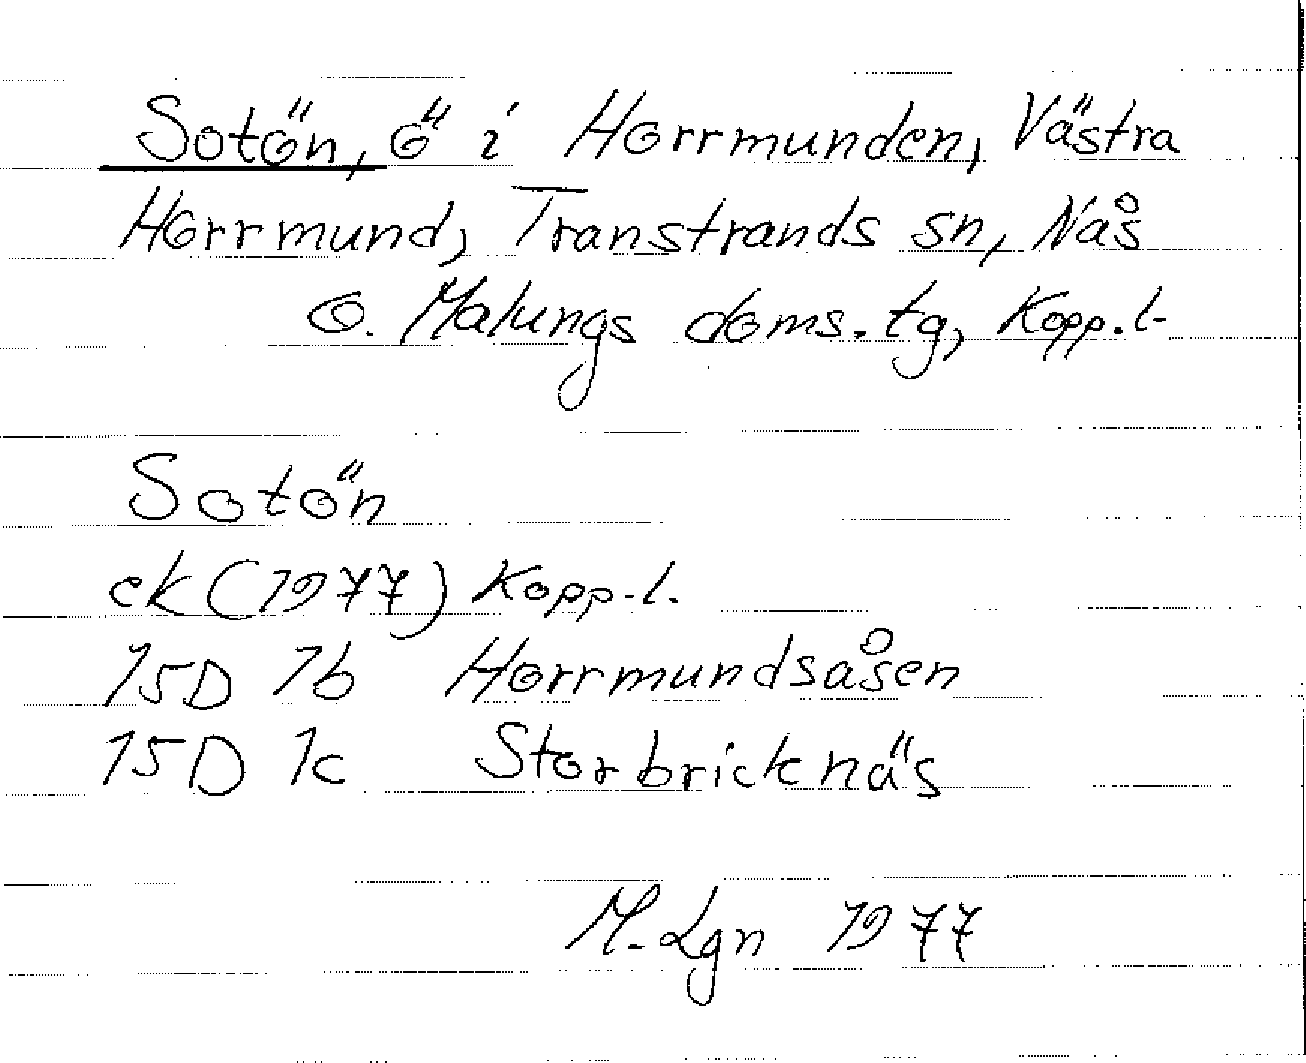 Sotön, ö i Horrmunden, Västra
Horrmund, Transtrands sn, Nås
o. Malungs doms.tg, Kopp.l.
Sotön
ek (1977) Kopp.l.
15D 1b Horrmundsåsen
15D 1c Storbricknäs
M. Lgn 1977